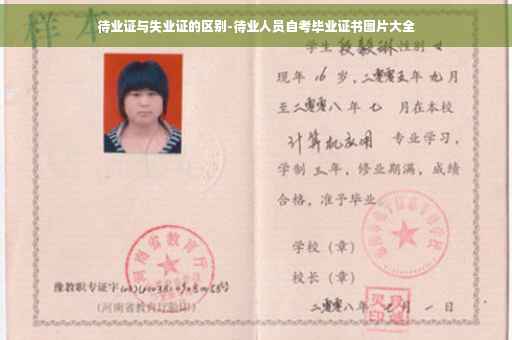 待业证与失业证的区别-待业人员自考毕业证书图片大全
样本
学生段毅琳性别女
现年16岁,二零零五年九月
至二零零八年七月在本校
计算机应用 专业学习,
学制三年,修业期满,成绩
合格,准予毕业
学校(章)
校长(章)
二零零八年 月一日
河南省教育厅
豫教职专证字
(河南省教育厅验印)